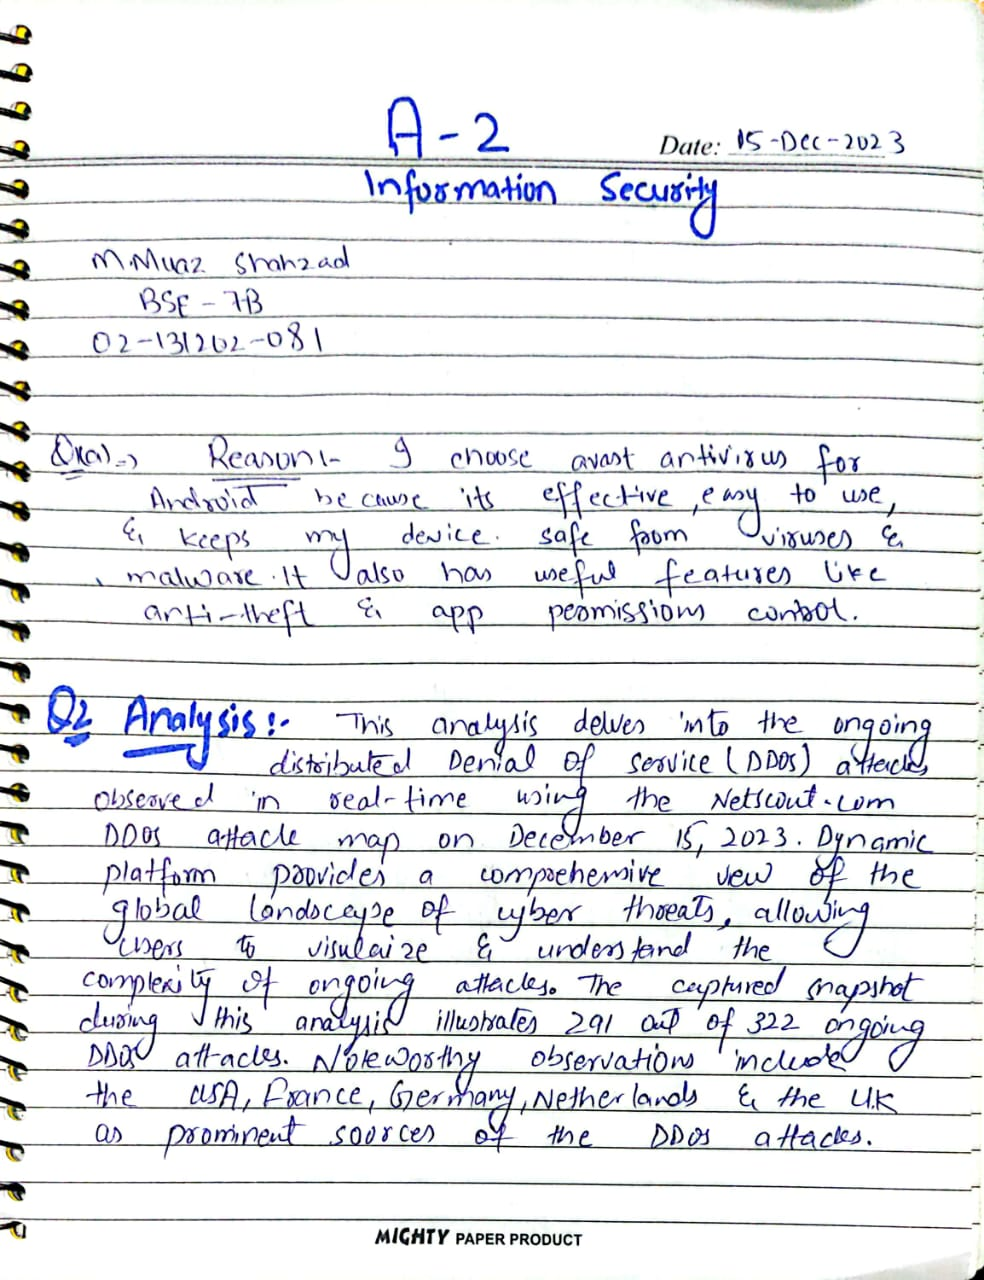 A-2
Date: 15-Dec-2023
Information Security
M.Muaz Shahzad
BSE-7B
02-131202-081
Reason:- I choose avast antivirus for
Android because its effective, easy to use,
& keeps my device. safe from viruses &
malware. It also has useful features like
anti-theft & app permissions control.
Q2 Analysis:- This analysis delves into the ongoing
distributed Denial Of service (DDOS) attacks
observed in real-time using the Netscout.com
DDOS attack map on December 15, 2023. Dynamic
platform provides a comprehensive view of the
global landscape of cyber threats, allowing
users to visulaize & understand the
complexity of ongoing attacks. The captured snapshot
during this analysis illustrates 291 out of 322 ongoing
DDOS attacks. Noteworthy observations include
the USA, France, Germany, Netherlands & the U.K
as prominent sources of the DDOS attacks.
MIGHTY PAPER PRODUCT